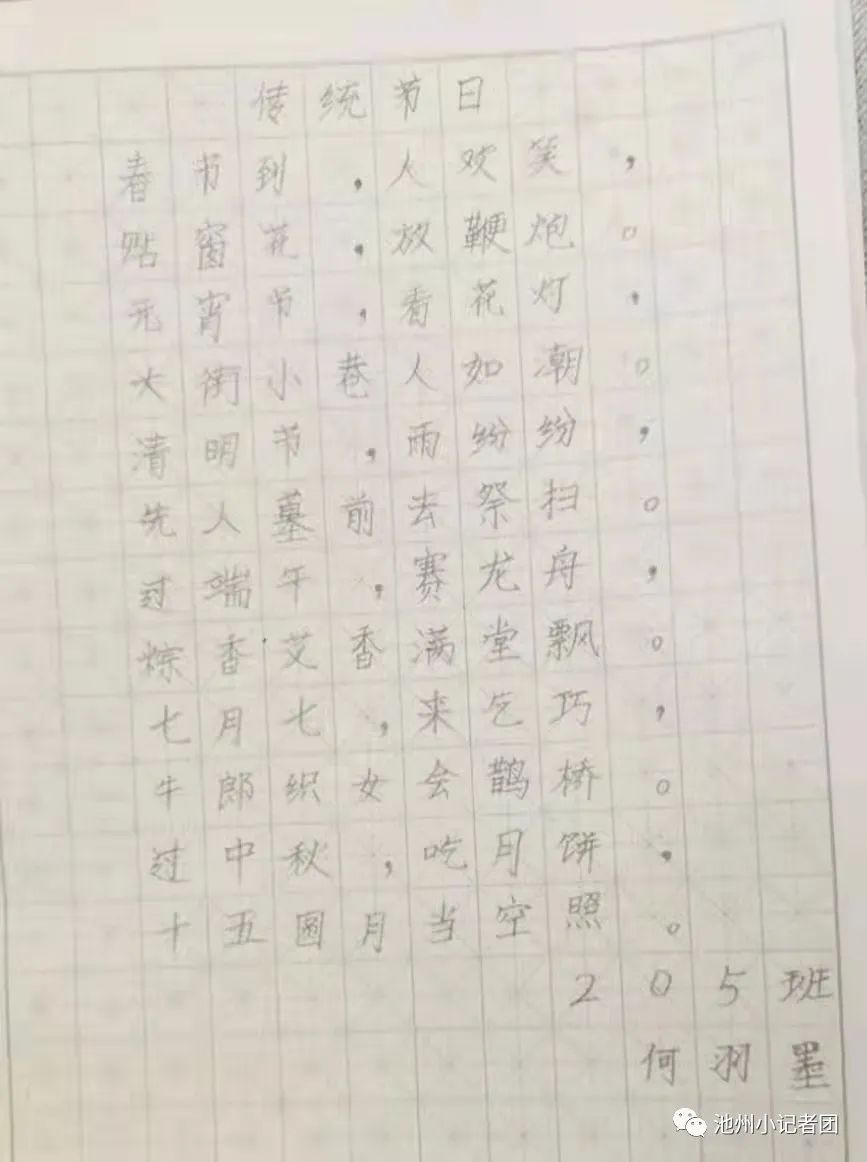 传统节日
春节到，人欢笑，
贴窗花，放鞭炮。
元宵节，看花灯，
大街小巷人如潮。
清明节，雨纷纷，
先人墓前去祭扫。
过端午，赛龙舟，
粽香艾香满堂飘。
七月七，来乞巧，
牛郎织女会鹊桥。
过中秋，吃月饼，
十五圆月当空照。
205班
何羽墨
池州小记者团